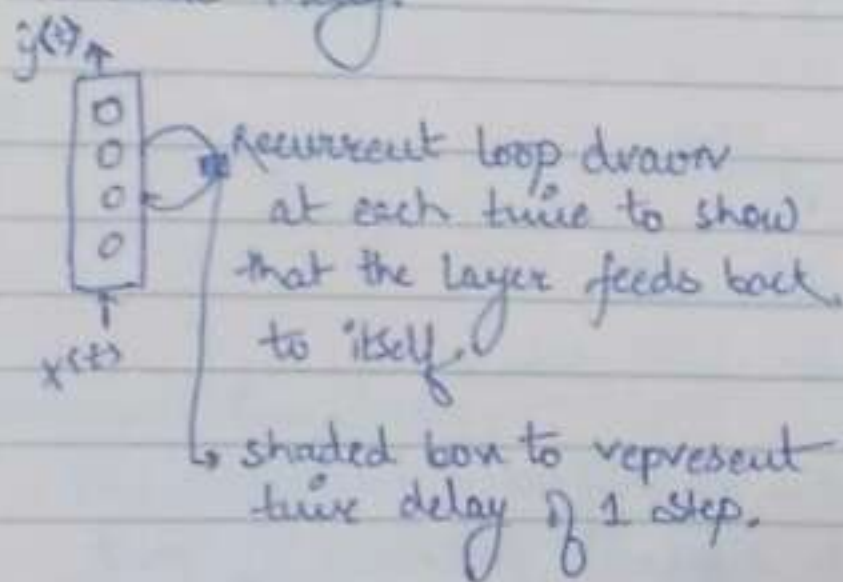 ŷ<t>
Recurrent loop drawn
at each time to show
that the layer feeds back
to itself.
x<t>
↳ shaded box to represent
time delay of 1 step.